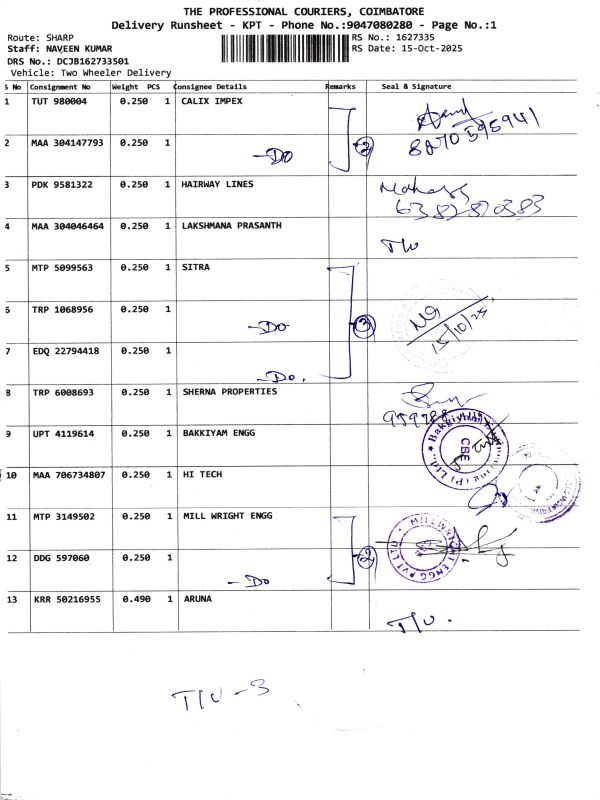 THE PROFESSIONAL COURIERS, COIMBATORE
Delivery Runsheet - KPT - Phone No.:9047080280 - Page No.:1
Route: SHARP
RS No.: 1627335
Staff: NAVEEN KUMAR
RS Date: 15-Oct-2025
DRS No.: DCJB162733501
Vehicle: Two Wheeler Delivery
S No Consignment No Weight PCS Consignee Details Remarks Seal & Signature
1 TUT 980004 0.250 1 CALIX IMPEX
8270595941
2 MAA 304147793 0.250 1 -Do 2
3 PDK 9581322 0.250 1 HAIRWAY LINES
6382820383
4 MAA 304046464 0.250 1 LAKSHMANA PRASANTH T/U
5 MTP 5099563 0.250 1 SITRA
6 TRP 1068956 0.250 1 -Do 3 15/10/25
7 EDQ 22794418 0.250 1 -Do.
8 TRP 6008693 0.250 1 SHERNA PROPERTIES
9 UPT 4119614 0.250 1 BAKKIYAM ENGG CBE
10 MAA 706734807 0.250 1 HI TECH
11 MTP 3149502 0.250 1 MILL WRIGHT ENGG
12 DDG 597060 0.250 1 -Do 2
13 KRR 50216955 0.490 1 ARUNA T/U.
T/U-3